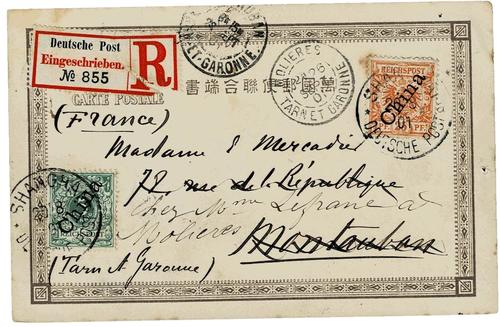 Deutsche Post
Eingeschrieben.
№ 855
R
ET-GARONNE
MOLIERES
26
01
TARN ET GARONNE
書端合聯便郵國萬
CARTE POSTALE
REICHSPOST
China
01
DEUTSCHE POST
(France)
Madame S Mercadier
72 rue de la République
chez Mme Lefranc à
Molières
Montauban
(Tarn et Garonne)
SHANGHAI
China